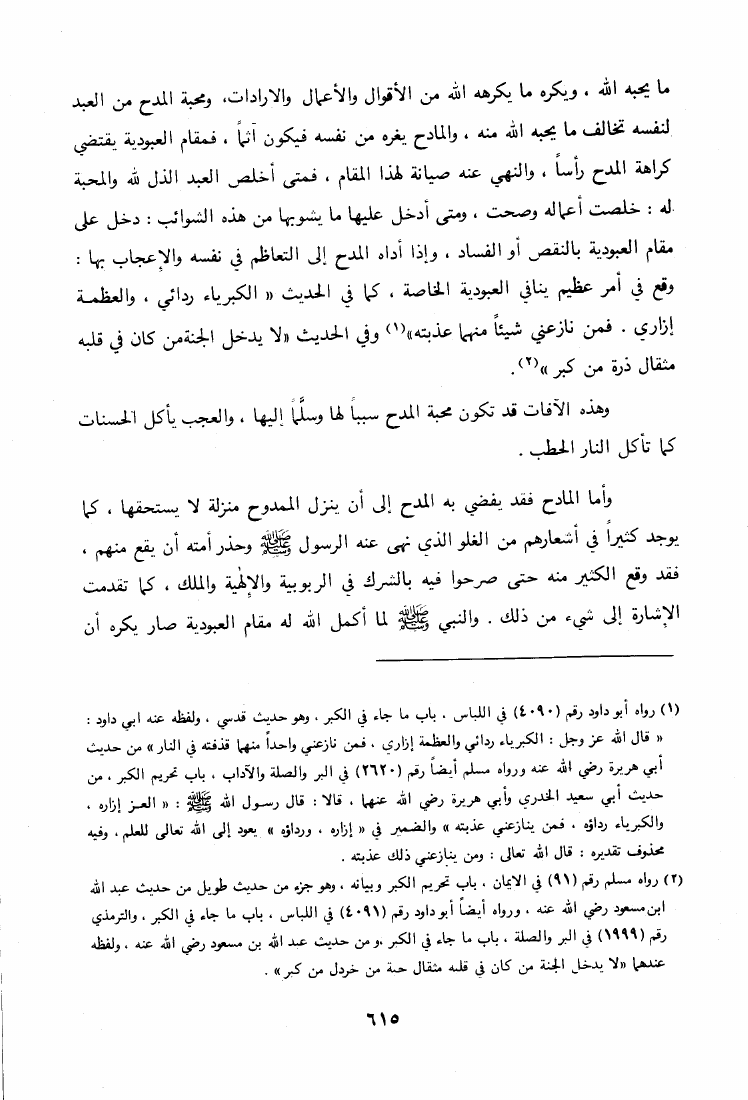 ما يحبه الله ، ويكره ما يكرهه الله من الأقوال والأعمال والارادات، ومحبة المدح من العبد
لنفسه تخالف ما يحبه الله منه ، والمادح يغره من نفسه فيكون آثماً ، فمقام العبودية يقتضي
كراهة المدح رأساً ، والنهي عنه صيانة لهذا المقام ، فمتى أخلص العبد الذل لله والمحبة
له : خلصت أعماله وصحت ، ومتى أدخل عليها ما يشوبها من هذه الشوائب : دخل على
مقام العبودية بالنقص أو الفساد ، وإذا أداه المدح إلى التعاظم في نفسه والإعجاب بها :
وقع في أمر عظيم ينافي العبودية الخاصة ، كما في الحديث « الكبرياء ردائي ، والعظمة
إزاري . فمن نازعني شيئاً منهما عذبته»(١) وفي الحديث «لا يدخل الجنةمن كان في قلبه
مثقال ذرة من كبر »(٢).
وهذه الآفات قد تكون محبة المدح سبباً لها وسلَّماً إليها ، والعجب يأكل الحسنات
كما تأكل النار الحطب .
وأما المادح فقد يفضي به المدح إلى أن ينزل الممدوح منزلة لا يستحقها ، كما
يوجد كثيراً في أشعارهم من الغلو الذي نهى عنه الرسول ﷺ وحذر أمته أن يقع منهم ،
فقد وقع الكثير منه حتى صرحوا فيه بالشرك في الربوبية والإلهية والملك ، كما تقدمت
الإشارة إلى شيء من ذلك . والنبي ﷺ لما أكمل الله له مقام العبودية صار يكره أن
(١) رواه أبو داود رقم (٤٠٩٠) في اللباس ، باب ما جاء في الكبر ، وهو حديث قدسي ، ولفظه عنه ابي داود :
« قال الله عز وجل : الكبرياء ردائي والعظمة إزاري ، فمن نازعني واحداً منهما قذفته في النار » من حديث
أبي هريرة رضي الله عنه ورواه مسلم أيضاً رقم (٢٦٢٠) في البر والصلة والآداب ، باب تحريم الكبر ، من
حديث أبي سعيد الخدري وأبي هريرة رضي الله عنهما ، قالا : قال رسول الله ﷺ : « العز إزاره ،
والكبرياء رداؤه ، فمن ينازعني عذبته » والضمير في « إزاره ، ورداؤه » يعود إلى الله تعالى للعلم ، وفيه
محذوف تقديره : قال الله تعالى : ومن ينازعني ذلك عذبته .
(٢) رواه مسلم رقم (٩١) في الايمان ، باب تحريم الكبر وبيانه ، وهو جزء من حديث طويل من حديث عبد الله
ابن مسعود رضي الله عنه ، ورواه أيضاً أبو داود رقم (٤٠٩١) في اللباس ، باب ما جاء في الكبر ، والترمذي
رقم (١٩٩٩) في البر والصلة ، باب ما جاء في الكبر ،و من حديث عبد الله بن مسعود رضي الله عنه ، ولفظه
عندهما «لا يدخل الجنة من كان في قلبه مثقال حبة من خردل من كبر» .
٦١٥